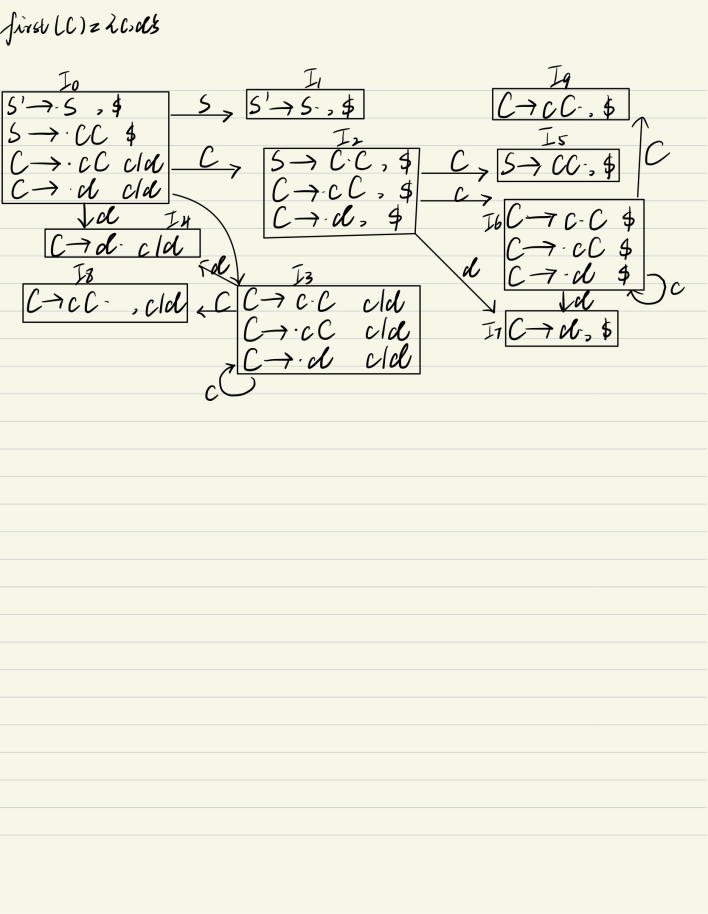 first(C)={c,d}
I0
S'→·S , $
S→·CC $
C→·cC c/d
C→·d c/d
S
I1
S'→S· , $
C
I2
S→C·C , $
C→·cC , $
C→·d , $
C
I5
S→CC· , $
c
I6
C→c·C $
C→·cC $
C→·d $
c
C
I9
C→cC· , $
d
d
I7
C→d· , $
d
I4
C→d· c/d
d
I3
C→c·C c/d
C→·cC c/d
C→·d c/d
c
C
I8
C→cC· , c/d